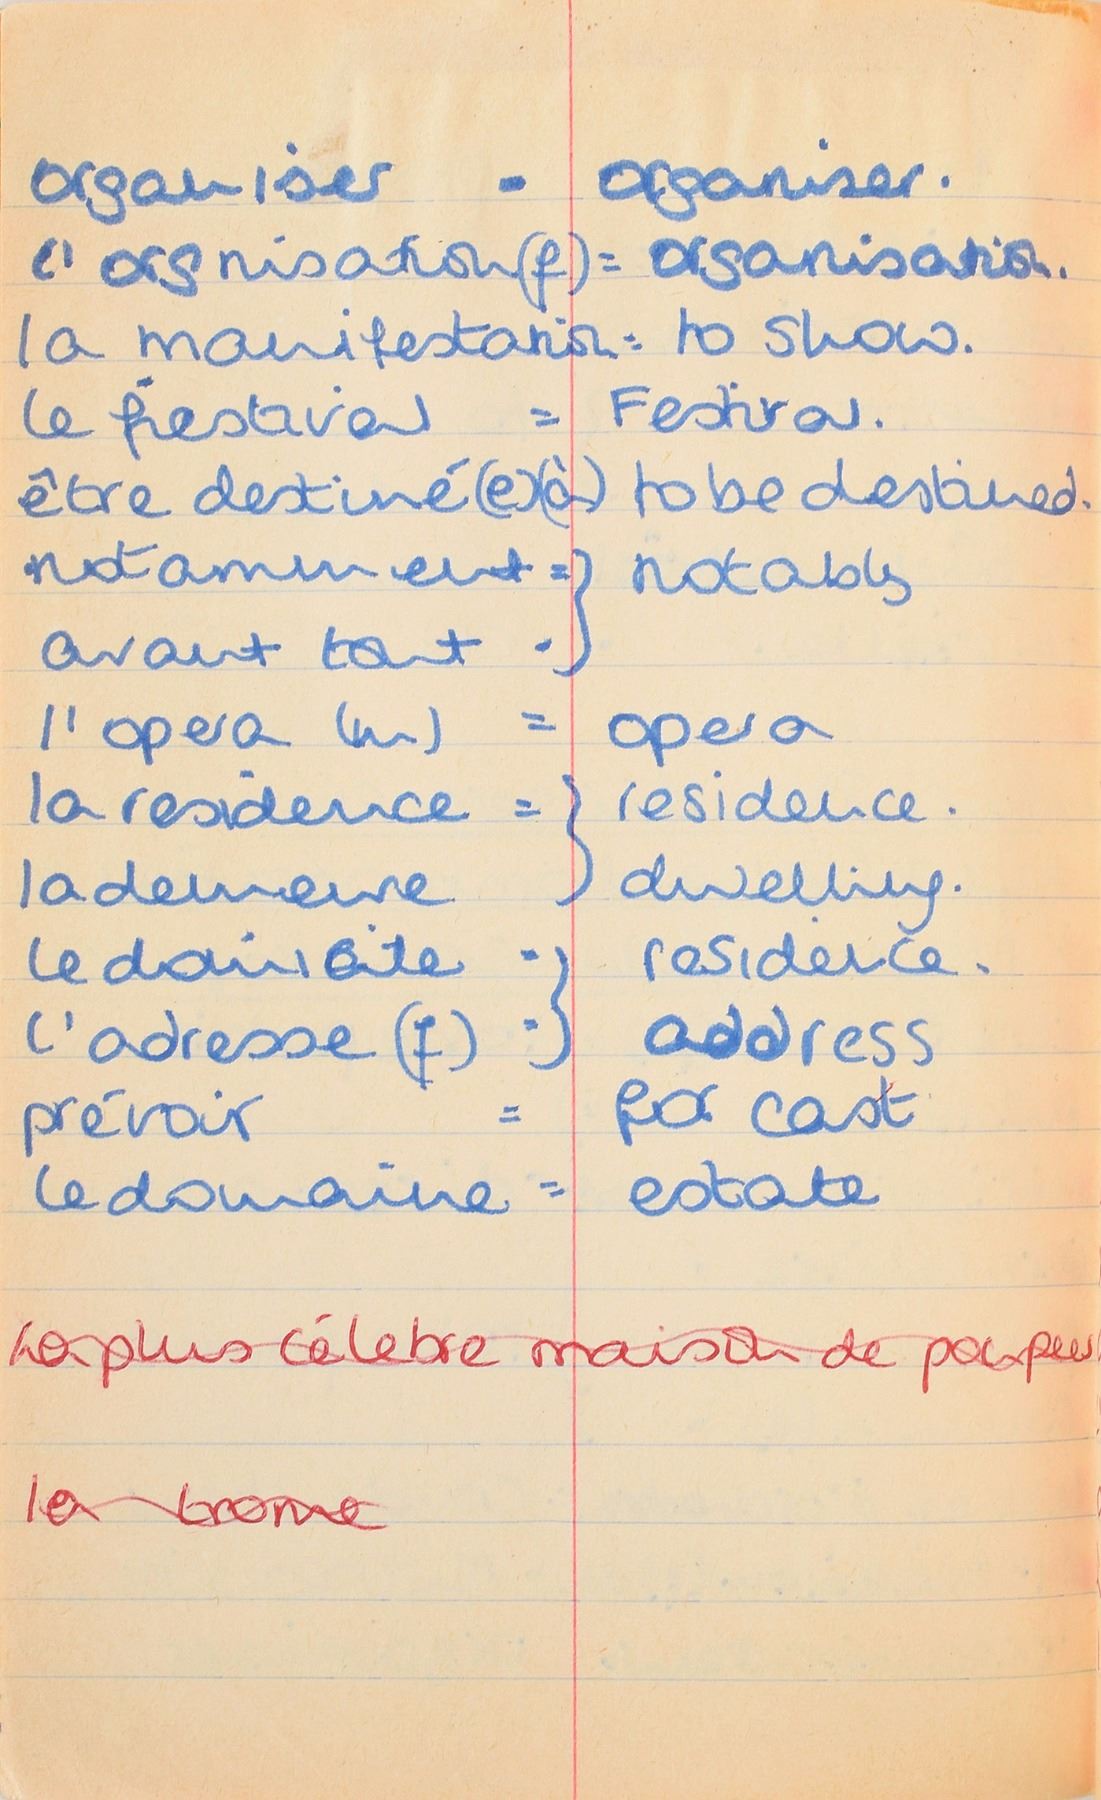 organiser = organiser.
l'orgnisation (f) = organisation.
la manifestation = to show.
le festival = Festival.
être destiné(e)(à) to be destined.
notamment = } notably
avant tant = }
l'opera (m) = opera
la residence = } residence.
la demeure } dwelling.
le domicile = } residence.
l'adresse (f) = } address
prévoir = for cast
le domaine = estate
La plus célebre maison de
la